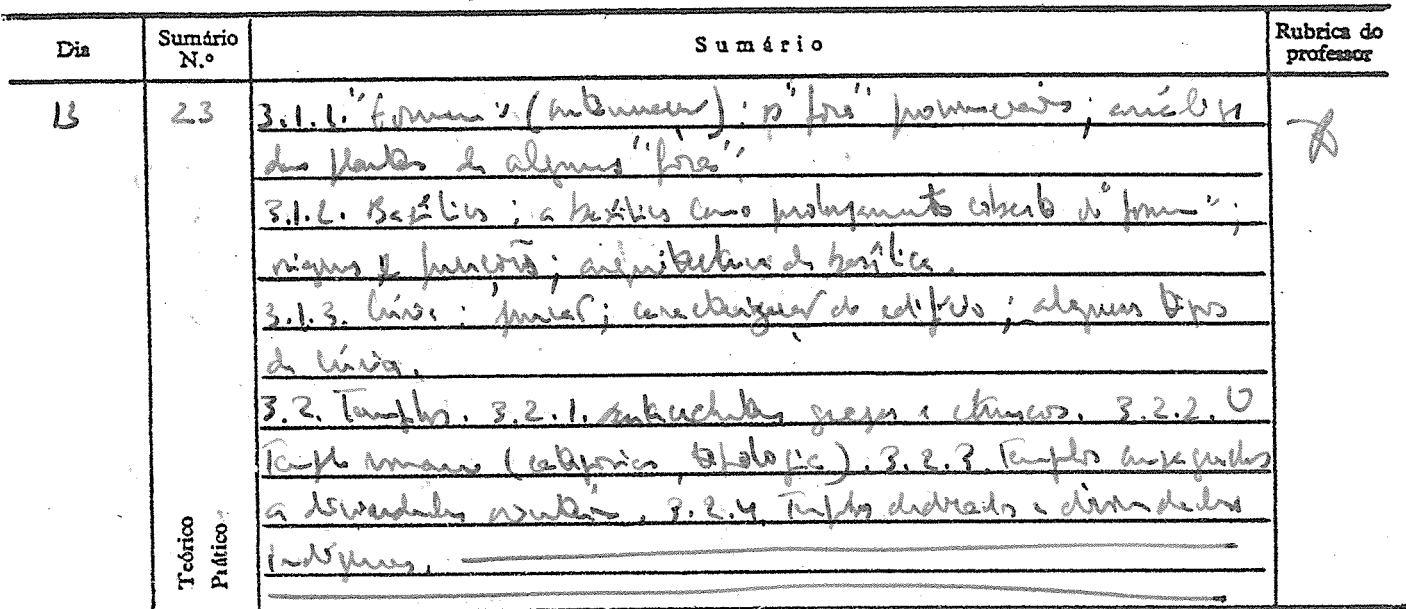 Dia Sumário N.º Sumário Rubrica do professor
13 23 3.1.1. "Forum" ( ): "fora" ; análise
das plantas de alguns "fora".
3.1.2. Basílica ; a basílica como prolongamento coberto do "forum" ;
origens e funções ; arquitectura da basílica.
3.1.3. Cúria : funções ; caracterização do edifício ; alguns tipos
de cúria.
3.2. Templos. 3.2.1. antecedentes gregos e etruscos. 3.2.2. O
Templo romano (categorias, tipologia). 3.2.3. Templos consagrados
a divindades orientais. 3.2.4. Templos dedicados a divindades
indígenas.
Teórico
Prático